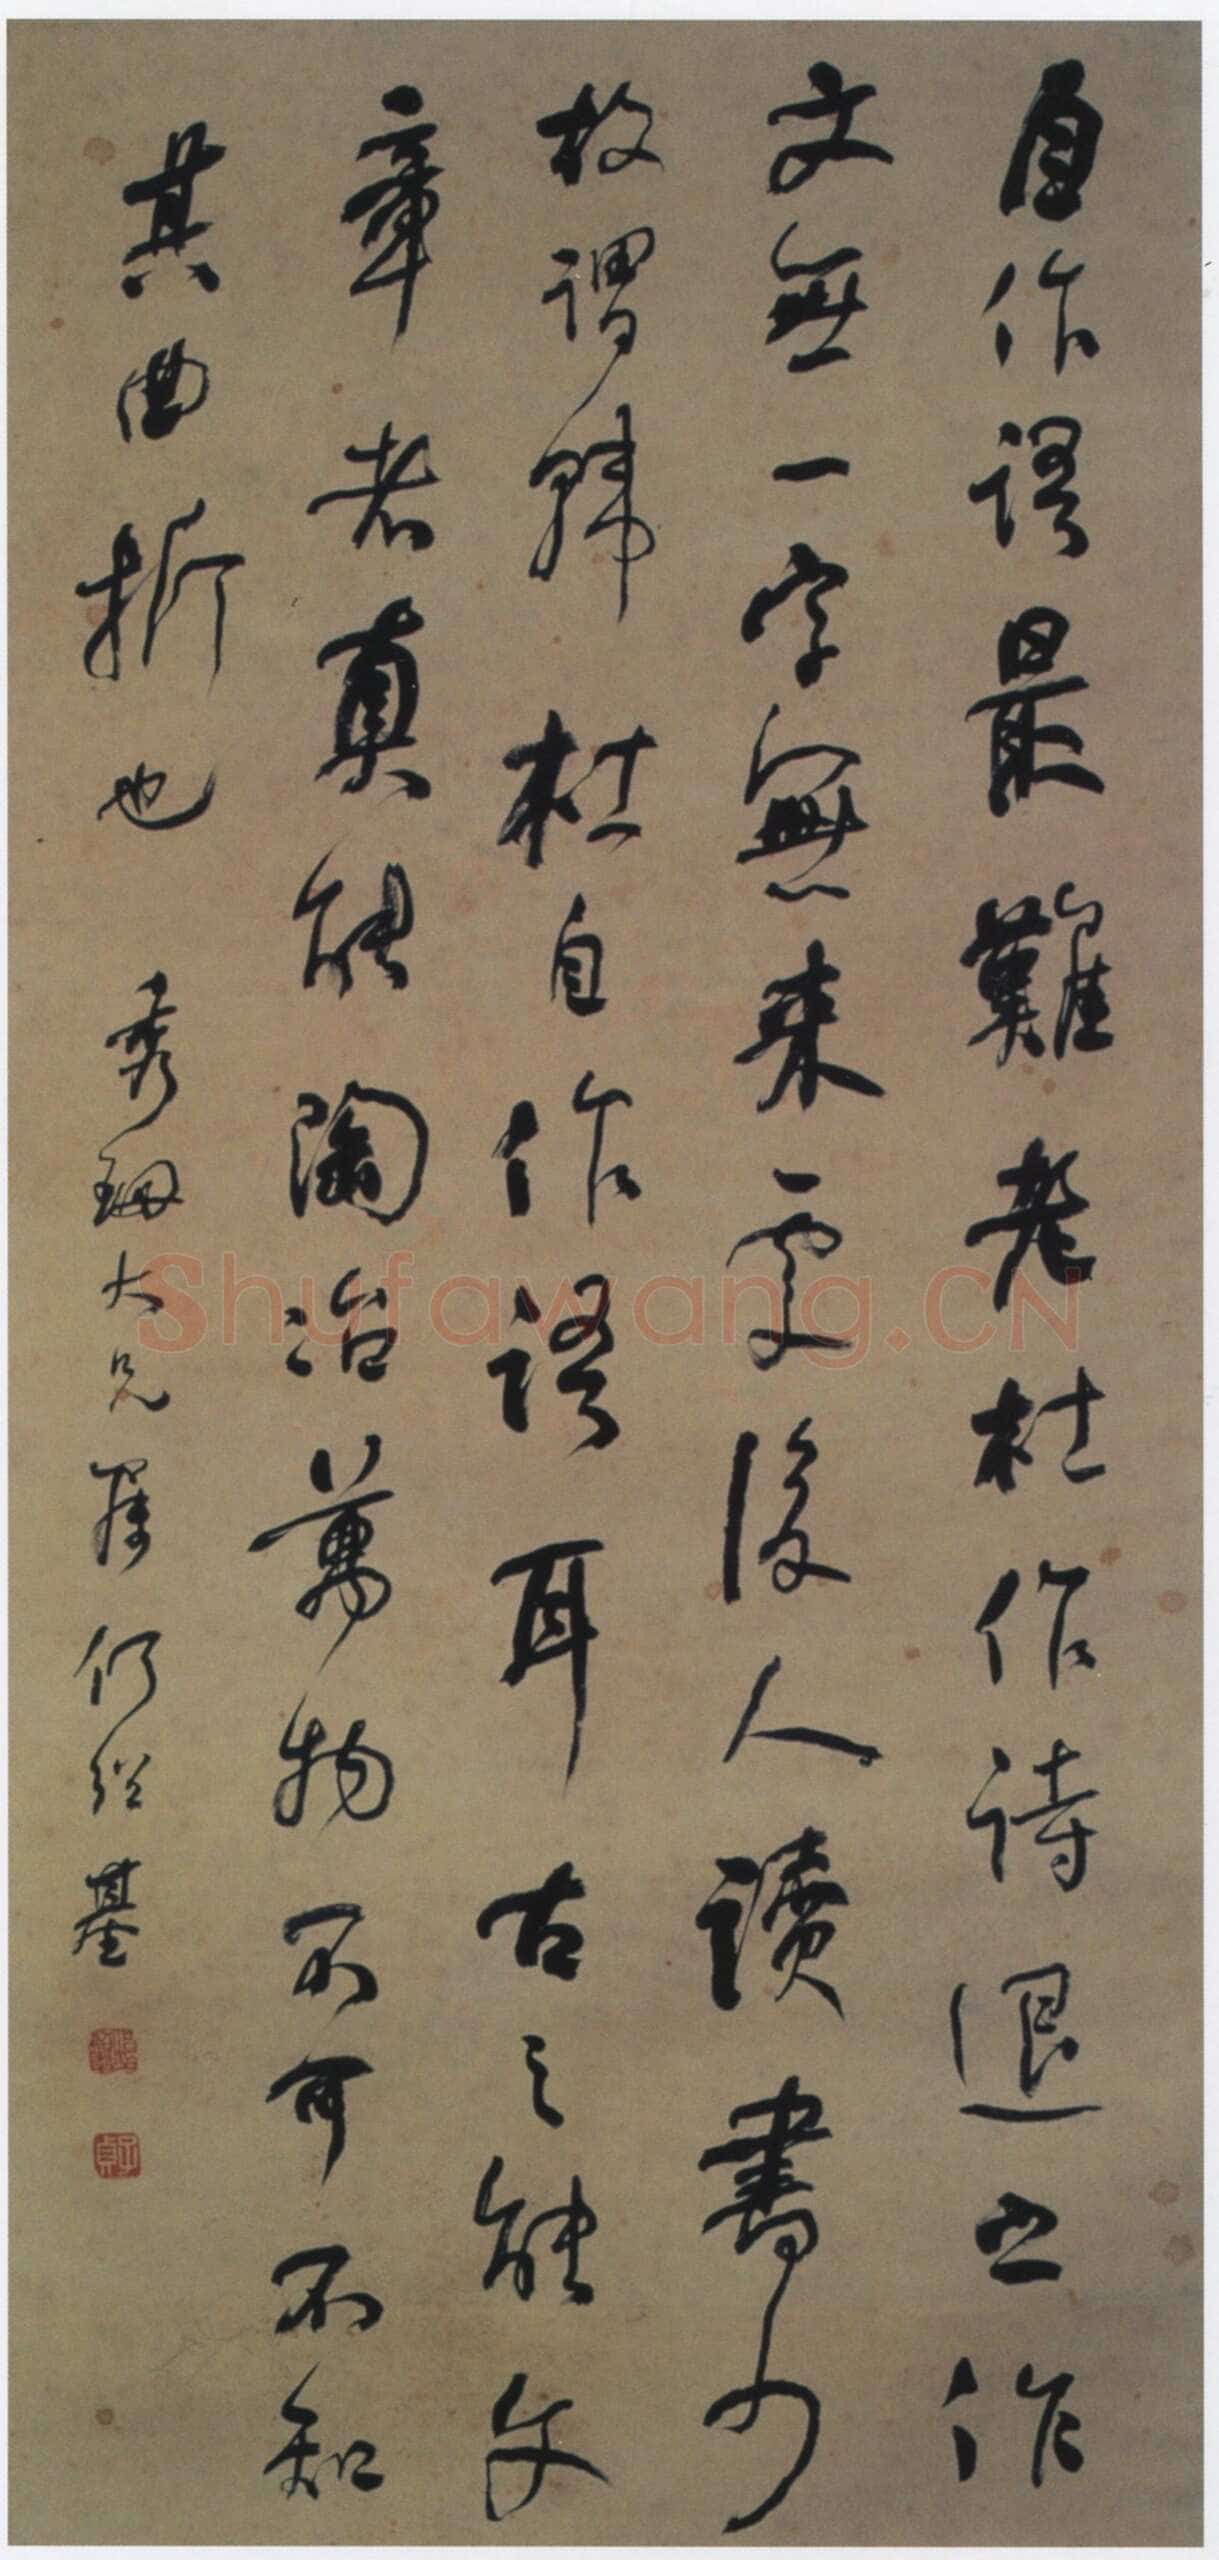 自作語最難老杜作詩退之作
文無一字無来處後人讀書少
故謂韓杜自作語耳古之能文
章者真能陶冶萬物不可不知
其曲折也 秀珊大兄屬 何紹基
子貞
Shufawang.CN